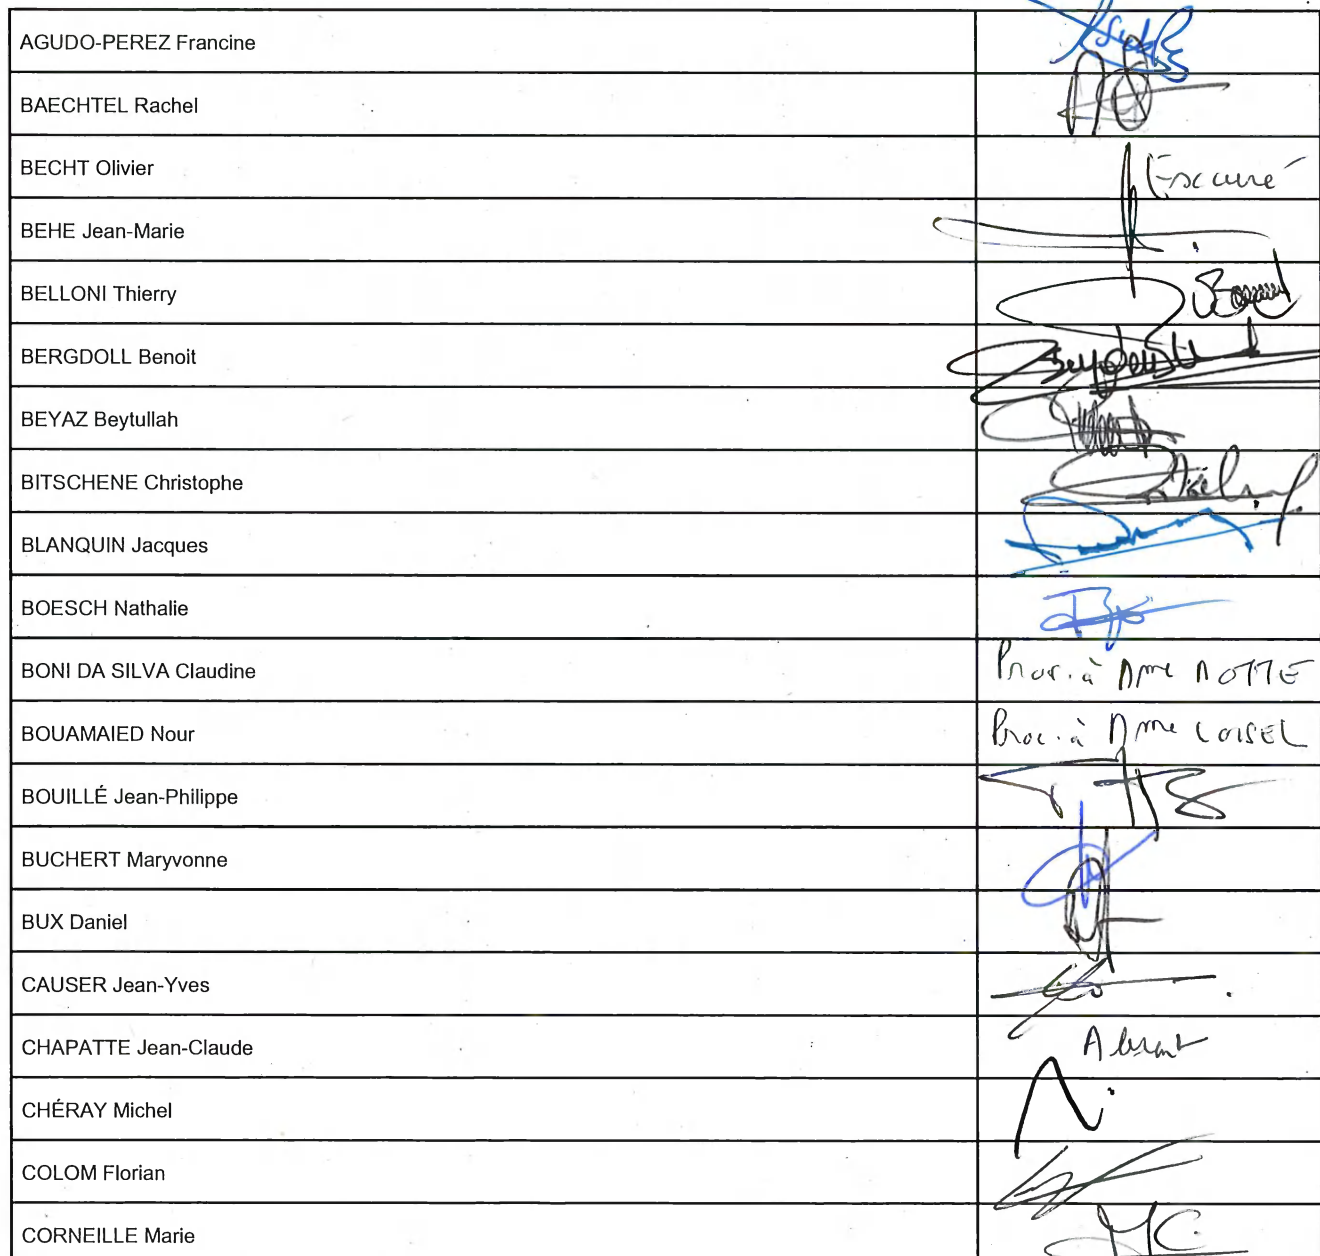 AGUDO-PEREZ Francine
BAECHTEL Rachel
BECHT Olivier Excusé
BEHE Jean-Marie
BELLONI Thierry
BERGDOLL Benoit
BEYAZ Beytullah
BITSCHENE Christophe
BLANQUIN Jacques
BOESCH Nathalie
BONI DA SILVA Claudine Proc. à Mme MOTTE
BOUAMAIED Nour Proc. à Mme LOISEL
BOUILLÉ Jean-Philippe
BUCHERT Maryvonne
BUX Daniel
CAUSER Jean-Yves
CHAPATTE Jean-Claude Absent
CHÉRAY Michel
COLOM Florian
CORNEILLE Marie MC